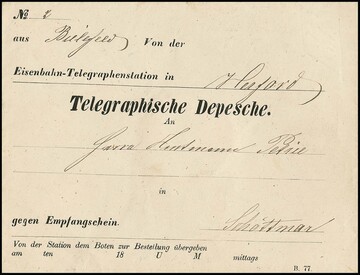 No 2
aus Bielefeld Von der
Eisenbahn-Telegraphenstation in Herford
Telegraphische Depesche.
An
Herrn
in
gegen Empfangschein. Schöttmar
Von der Station dem Boten zur Bestellung übergeben
am ten 18 U M mittags
B. 77.